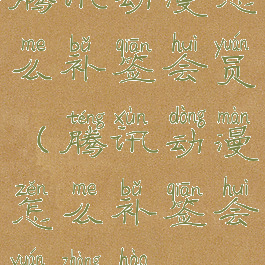 me bǔ qiān huì yuán
么补签会员
téng xùn dòng màn
（腾讯动漫
zěn me bǔ qiān huì
怎么补签会
yuán zhàng hào